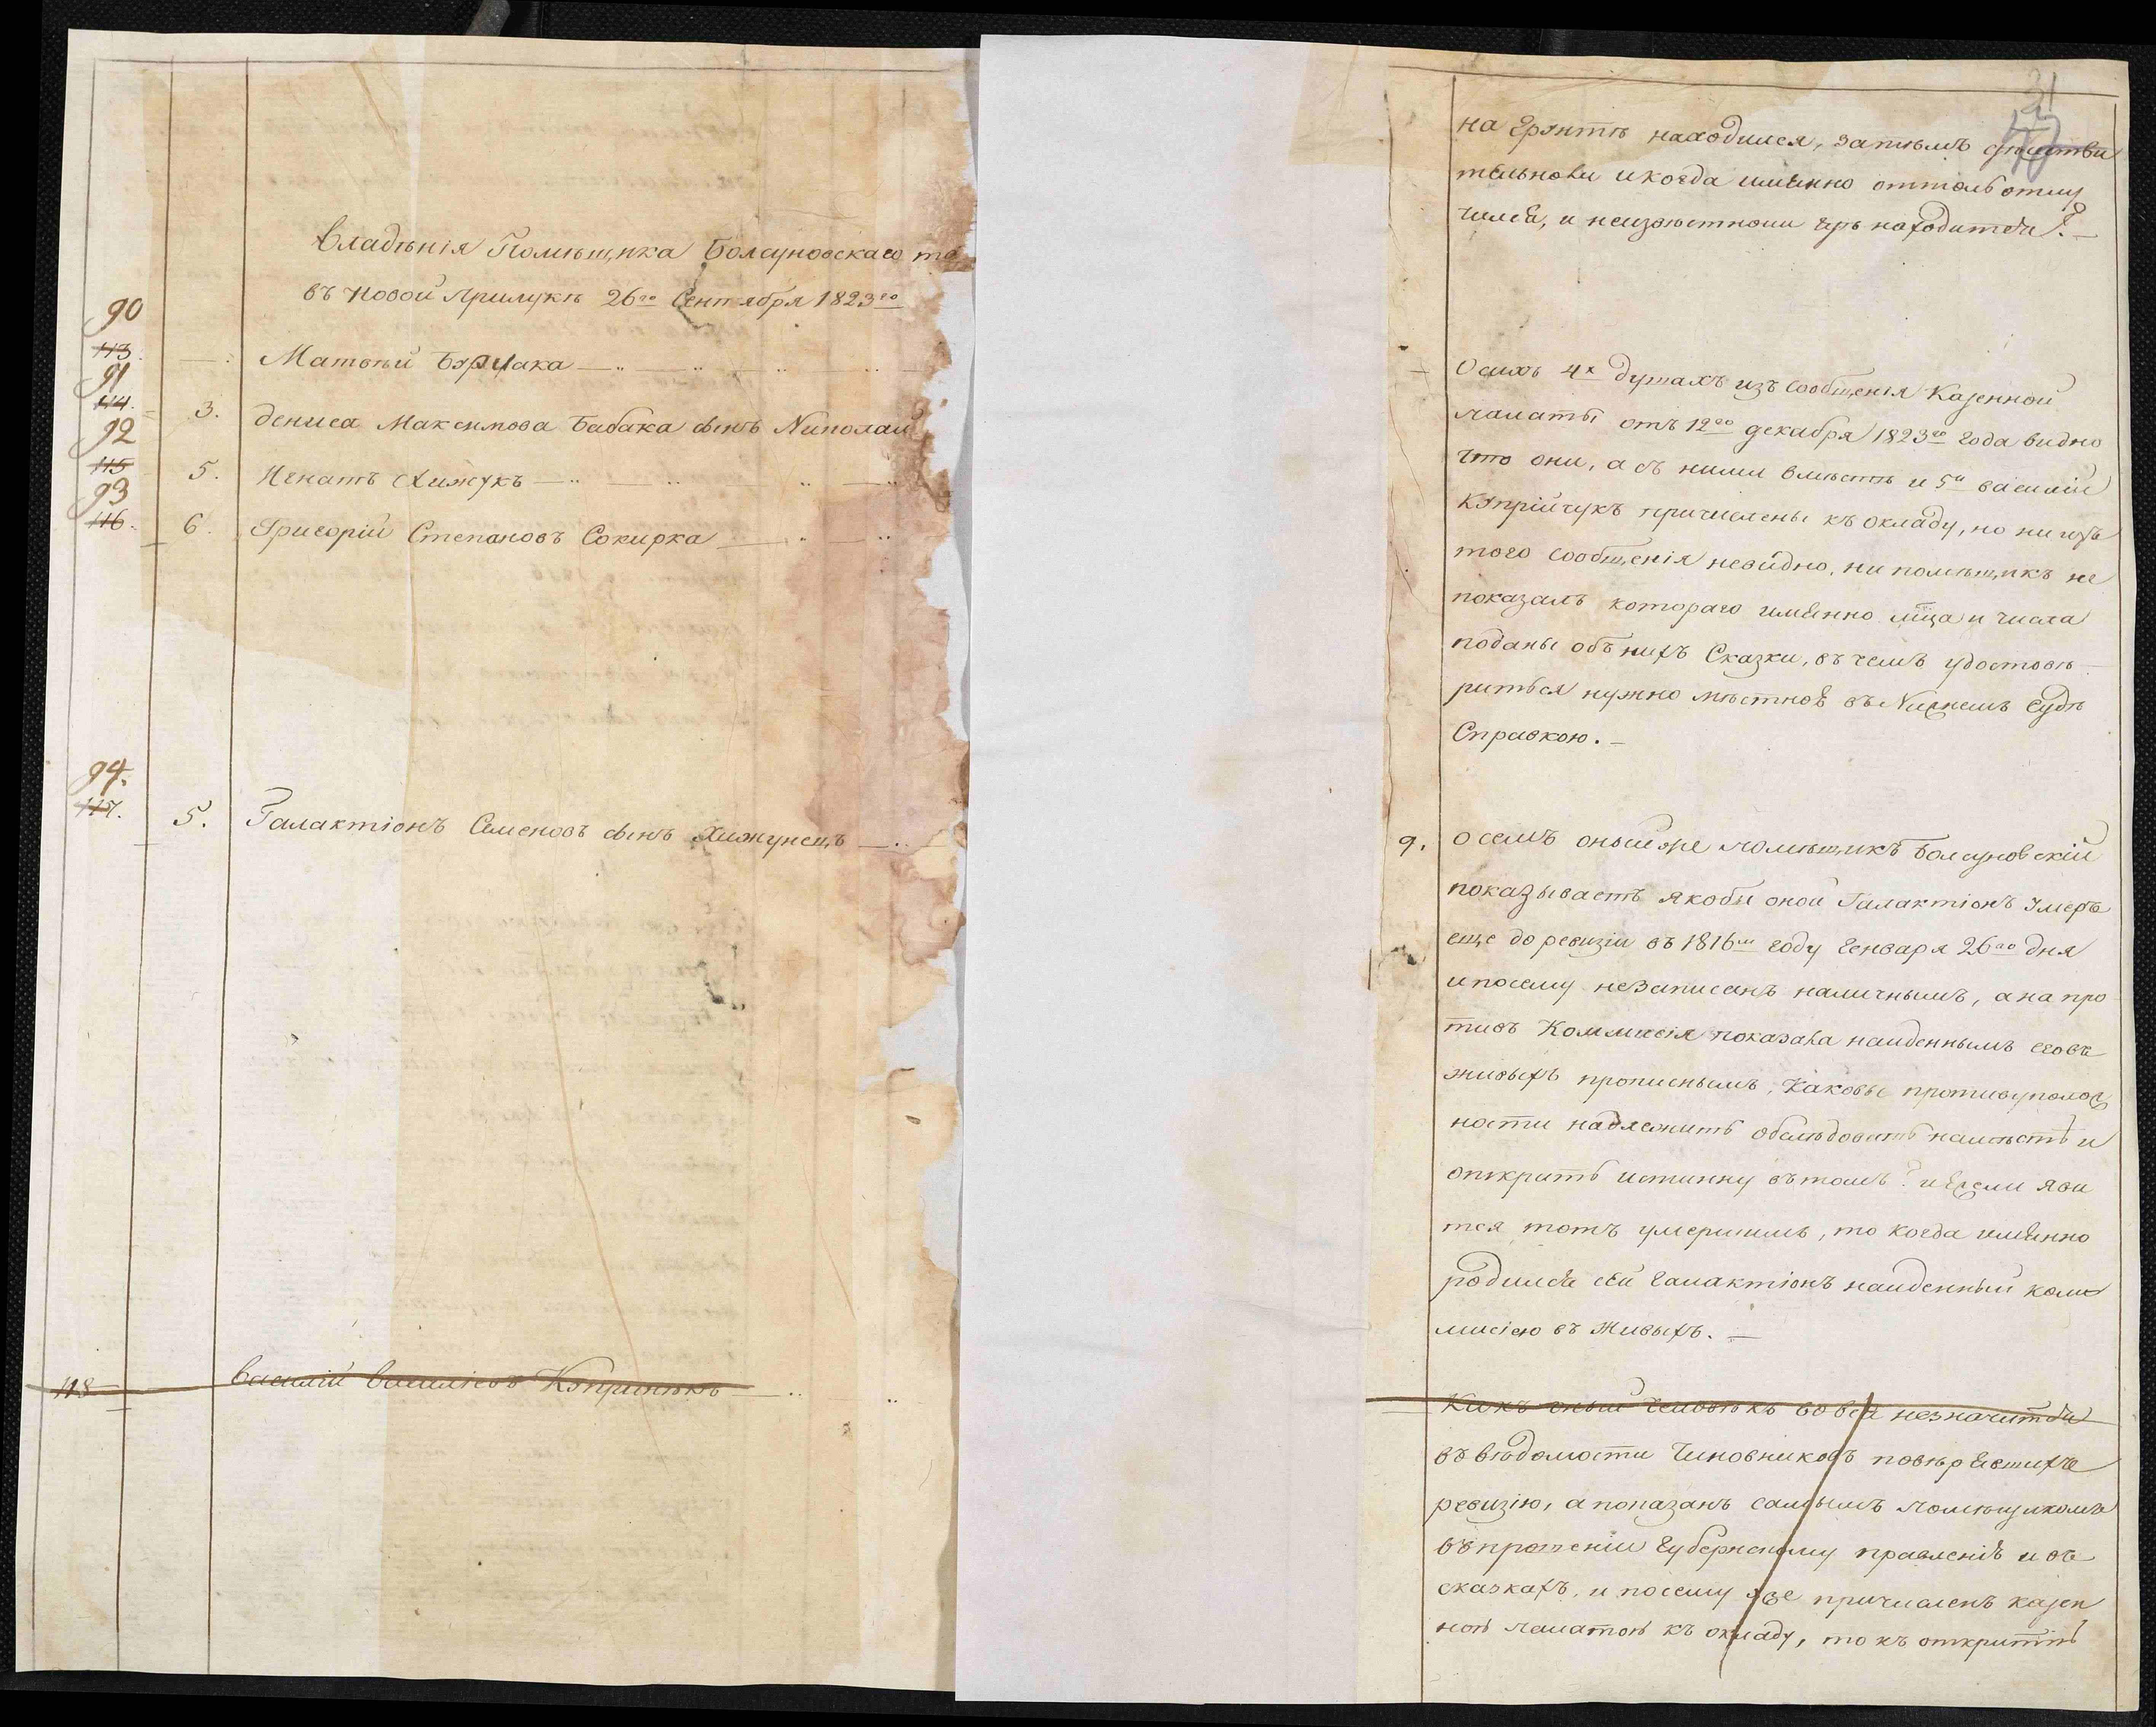 Владѣнія Помѣщика Болсуновскаго то
въ Новой Прилукѣ 26го Сентября 1823го
90
113. Матвѣй
91
114. 3. Дениса Максимова Бабака сынъ Николай
92
115 5. Игнатъ Хижукъ
93
116. 6. Григорій Степановъ Сокирка
94.
117. 5. Галактіонъ Семеновъ сынъ Хижунецъ
118 Василій Василіевъ
31
на находился, затѣмъ дѣйстви
тельноли и когда имѣнно оттоль отлу
чился, и неизвѣстноли гдѣ находится?
О сихъ 4х душахъ изъ сообщенія Казенной
палаты отъ 12го декабря 1823го года видно
что они, а съ ними вмѣстѣ и 5й Василій
Купрійчукъ причислены къ окладу, но ни изъ
того сообщенія невидно, ни помѣщикъ не
показалъ котораго имѣнно мца и числа
поданы объ нихъ Сказки, въ чемъ удостовѣ
риться нужно мѣстной въ Нижнемъ Судѣ
Справкою.
9. О семъ оный же помѣщикъ Болсуновскій
показываетъ якобы оной Галактіонъ умеръ
еще до ревизіи въ 1816м году Генваря 26го дня
и посему незаписанъ наличнымъ, а на про
тивъ Коммисія показала найденнымъ его въ
живыхъ прописнымъ, Каковы противуполож
ности надлежитъ обслѣдовать наместѣ и
открыть истинну въ томъ? и Ежели яви
тся тотъ умершимъ, то когда имѣнно
родился сей Галактіонъ найденный ком
мисіею въ живыхъ.
Какъ оный человѣкъ вовся незначится
въ вѣдомости Чиновниковъ
ревизію, а показанъ самымъ помѣщикомъ
въ прошеніи Губернскому правленію и въ
сказкахъ, и посему уже причисленъ казен
ной палатой къ окладу, то къ открытію